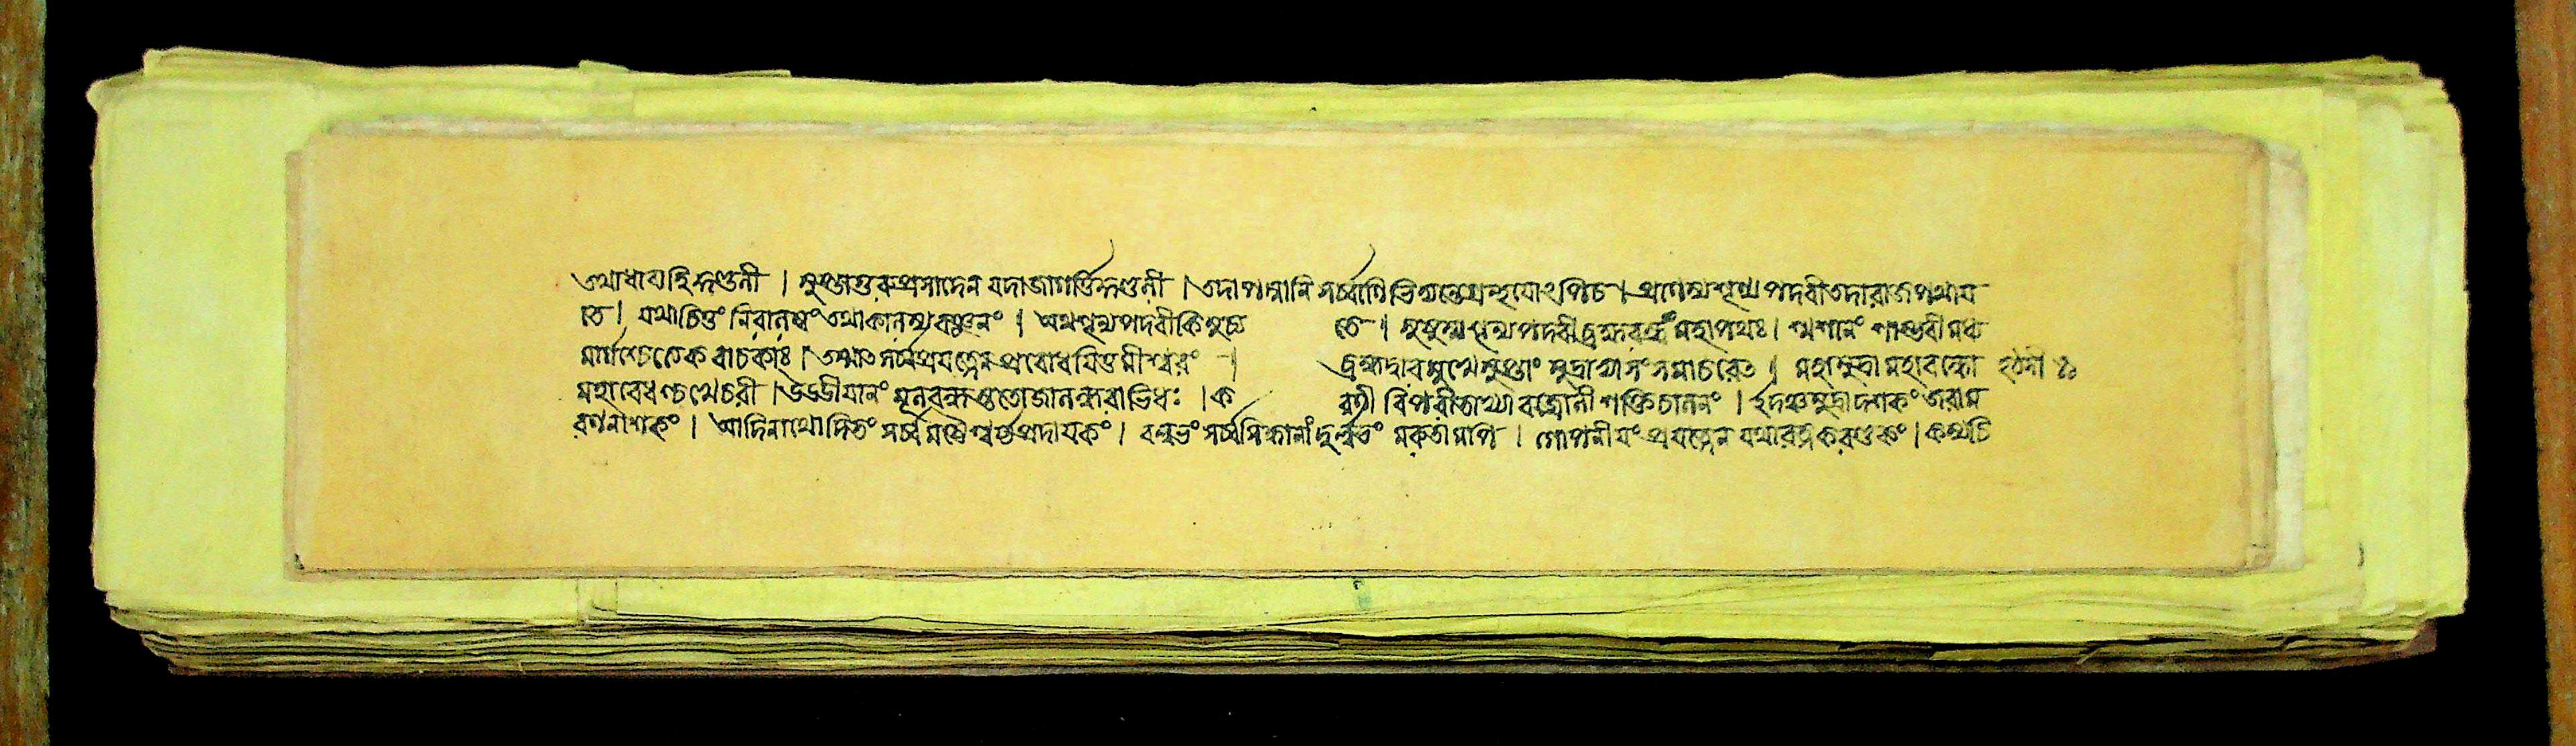 তথাধাব্যহি কুণ্ডলী । সুপ্তাগুরুপ্রসাদেন যদাজাগর্ত্তি কুণ্ডলী । তদাপদ্মানি সর্ব্বাণি ভিদ্যন্তেগ্রন্থযোঽপিচ । প্রাণস্যশূন্যপদবীতদারাজপথায
তে । যথাচিত্তং নিরালম্বং তথাকালস্যবঞ্চনং । অথশূন্যপদবীকিমুচ্য তে । সুষুম্নাশূন্যপদবীব্রহ্মরন্ধ্রং মহাপথঃ । শ্মশানং শাম্ভবীমধ্য
মার্গশ্চেত্যেকবাচকাঃ । তস্মাত সর্ব্বপ্রযত্নেন প্রবোধযিতুমীশ্বরং । ব্রহ্মদ্বারমুখেসুপ্তাং মুদ্রাভ্যাসং সমাচরেত । মহামুদ্রা মহাবন্ধো
মহাবেধশ্চখেচরী । উড্ডীযানং মূলবন্ধস্ততোজালন্ধরাভিধঃ । ক রণী বিপরীতাখ্যা বজ্রোলী শক্তিচালনং । ইদঞ্চমুদ্রাদশকং জরাম
রণনাশকং । আদিনাথোদিতং সর্ব্বমষ্টৈশ্বর্য্যপ্রদাযকং । বল্লভং সর্ব্বসিদ্ধানাং দুর্ল্লভং মরুতামপি । গোপনীযং প্রযত্নেন যথারত্নকরণ্ডকং । কস্যচি